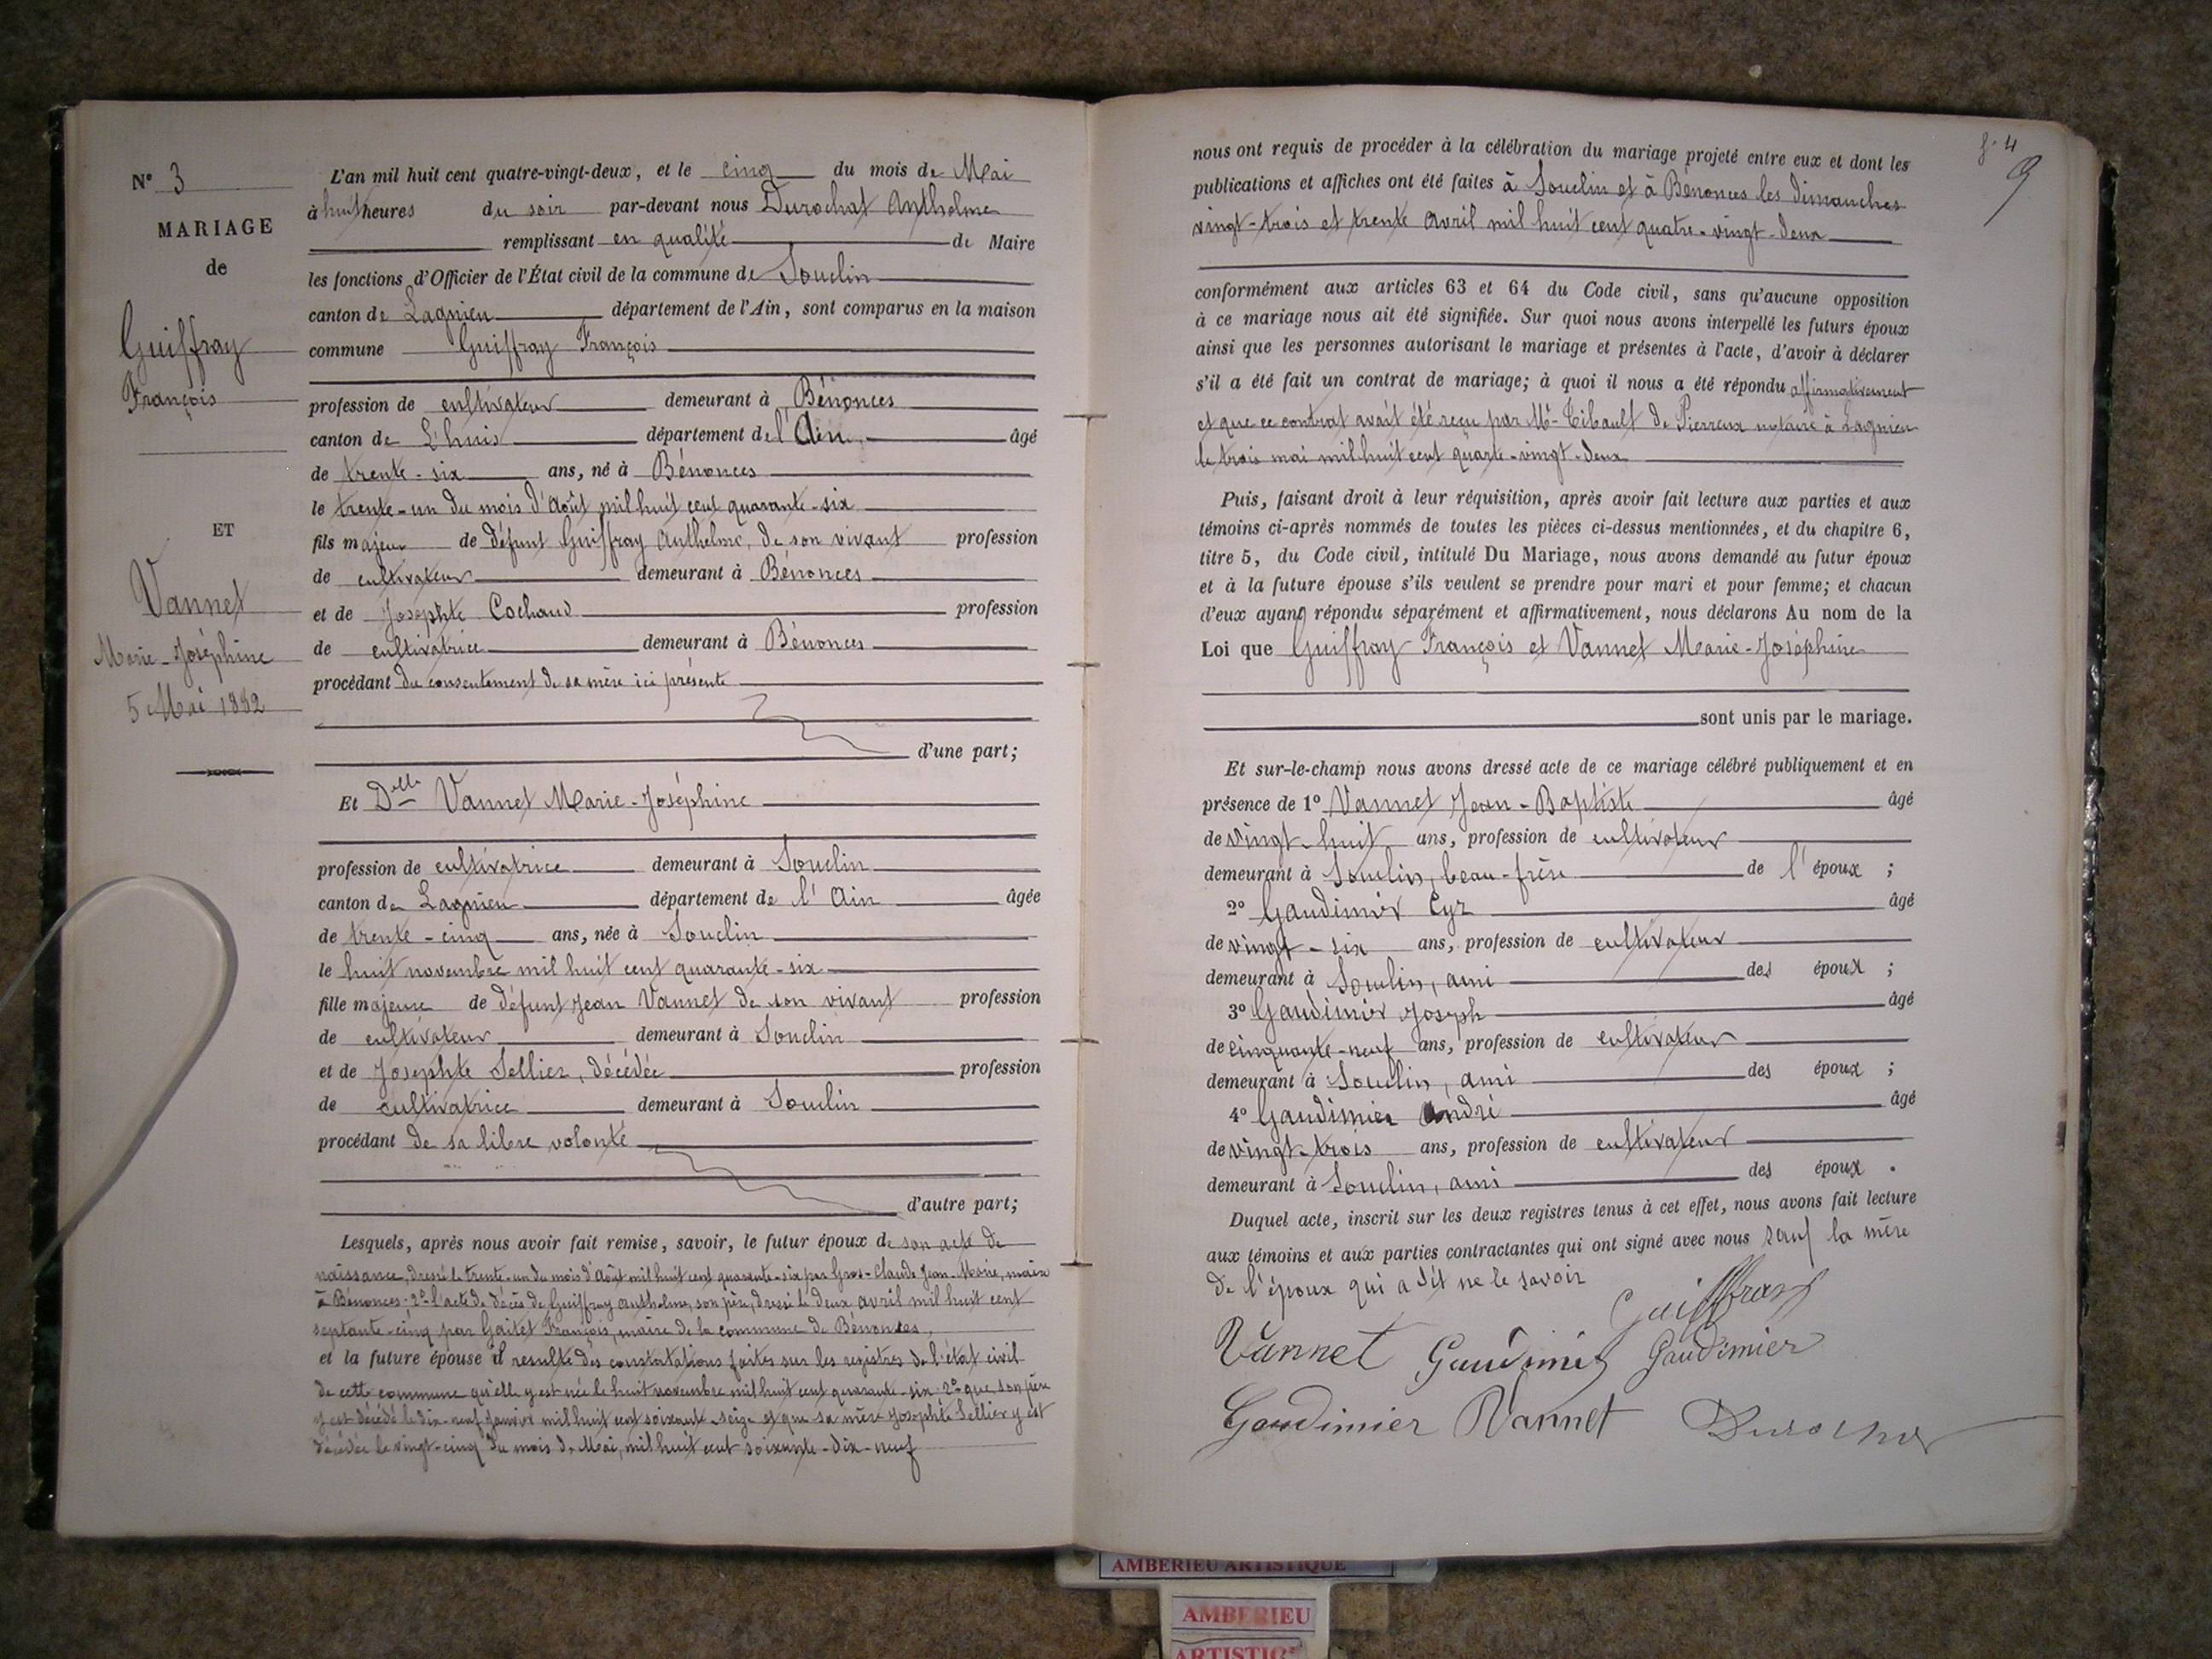 N° 3
MARIAGE
de
Guiffray
François
ET
Vannet
Marie-Joséphine
5 Mai 1882
L'an mil huit cent quatre-vingt-deux, et le cinq du mois de Mai
à huit heures du soir par-devant nous Durochat Anthelme
remplissant en qualité de Maire
les fonctions d'Officier de l'État civil de la commune de Souclin
canton de Lagnieu département de l'Ain, sont comparus en la maison
commune Guiffray François
profession de cultivateur demeurant à Bénonces
canton de L'huis département de l'Ain, âgé
de trente-six ans, né à Bénonces
le trente-un du mois d'Août mil huit cent quarante-six
fils majeur de défunt Guiffray Anthelme, de son vivant profession
de cultivateur demeurant à Bénonces
et de Josephte Cochaud profession
de cultivatrice demeurant à Bénonces
procédant du consentement de sa mère ici présente
d'une part;
Et Delle Vannet Marie-Joséphine
profession de cultivatrice demeurant à Souclin
canton de Lagnieu département de l'Ain âgée
de trente-cinq ans, née à Souclin
le huit novembre mil huit cent quarante-six
fille majeure de défunt Jean Vannet de son vivant profession
de cultivateur demeurant à Souclin
et de Josephte Sellier, décédée profession
de cultivatrice demeurant à Souclin
procédant de sa libre volonté
d'autre part;
Lesquels, après nous avoir fait remise, savoir, le futur époux de son acte de
naissance, dressé le trente-un du mois d'Août mil huit cent quarante-six par Gros-Claude Jean-Marie, maire
à Bénonces. 2° l'acte de décès de Guiffray Anthelme, son père, dressé le deux avril mil huit cent
septante-cinq par Gaitet François, maire de la commune de Bénonces,
et la future épouse il resulte des constatations faites sur les registres de l'état civil
de cette commune qu'elle y est née le huit novembre mil huit cent quarante-six 2° que son père
y est décédé le dix-neuf janvier mil huit cent soixante-seize et que sa mère Josephte Sellier y est
décédée le vingt-cinq du mois de Mai, mil huit cent soixante-dix-neuf
f. 4
9
nous ont requis de procéder à la célébration du mariage projeté entre eux et dont les
publications et affiches ont été faites à Souclin et à Bénonces les dimanches
vingt-trois et trente avril mil huit cent quatre-vingt-deux
conformément aux articles 63 et 64 du Code civil, sans qu'aucune opposition
à ce mariage nous ait été signifiée. Sur quoi nous avons interpellé les futurs époux
ainsi que les personnes autorisant le mariage et présentes à l'acte, d'avoir à déclarer
s'il a été fait un contrat de mariage; à quoi il nous a été répondu affirmativement
et que ce contrat avait été reçu par Me Tibault de Pierreux notaire à Lagnieu
le trois mai mil huit cent quarte-vingt-deux
Puis, faisant droit à leur réquisition, après avoir fait lecture aux parties et aux
témoins ci-après nommés de toutes les pièces ci-dessus mentionnées, et du chapitre 6,
titre 5, du Code civil, intitulé Du Mariage, nous avons demandé au futur époux
et à la future épouse s'ils veulent se prendre pour mari et pour femme; et chacun
d'eux ayant répondu séparément et affirmativement, nous déclarons Au nom de la
Loi que Guiffray François et Vannet Marie-Joséphine
sont unis par le mariage.
Et sur-le-champ nous avons dressé acte de ce mariage célébré publiquement et en
présence de 1° Vannet Jean-Baptiste âgé
de vingt-huit ans, profession de cultivateur
demeurant à Souclin, beau-frère de l'époux ;
2° Gaudimier Cyr âgé
de vingt-six ans, profession de cultivateur
demeurant à Souclin, ami des époux ;
3° Gaudimier Joseph âgé
de cinquante-neuf ans, profession de cultivateur
demeurant à Souclin, ami des époux ;
4° Gaudimier André âgé
de vingt-trois ans, profession de cultivateur
demeurant à Souclin, ami des époux .
Duquel acte, inscrit sur les deux registres tenus à cet effet, nous avons fait lecture
aux témoins et aux parties contractantes qui ont signé avec nous sauf la mère
de l'époux qui a dit ne le savoir
Guiffray
Vannet Gaudimier Gaudimier
Gaudimier Vannet Durochat
AMBERIEU ARTISTIQUE
AMBERIEU
ARTISTIQ